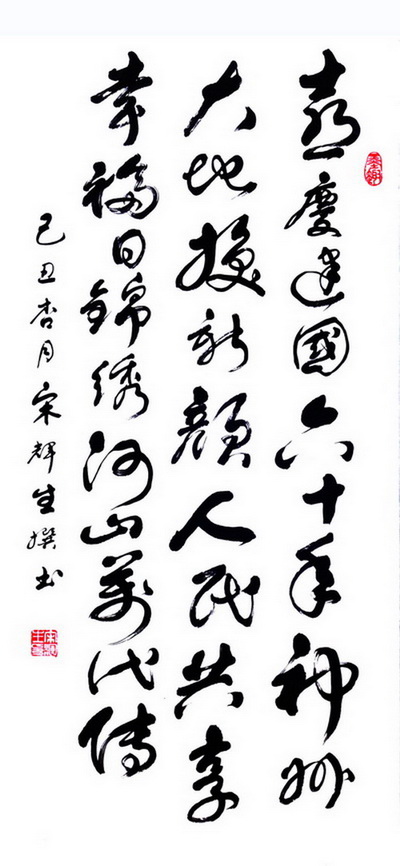 喜慶建國六十年神州
大地換新顏人民共享
幸福日錦綉河山萬代傳
己丑杏月宋輝生撰书